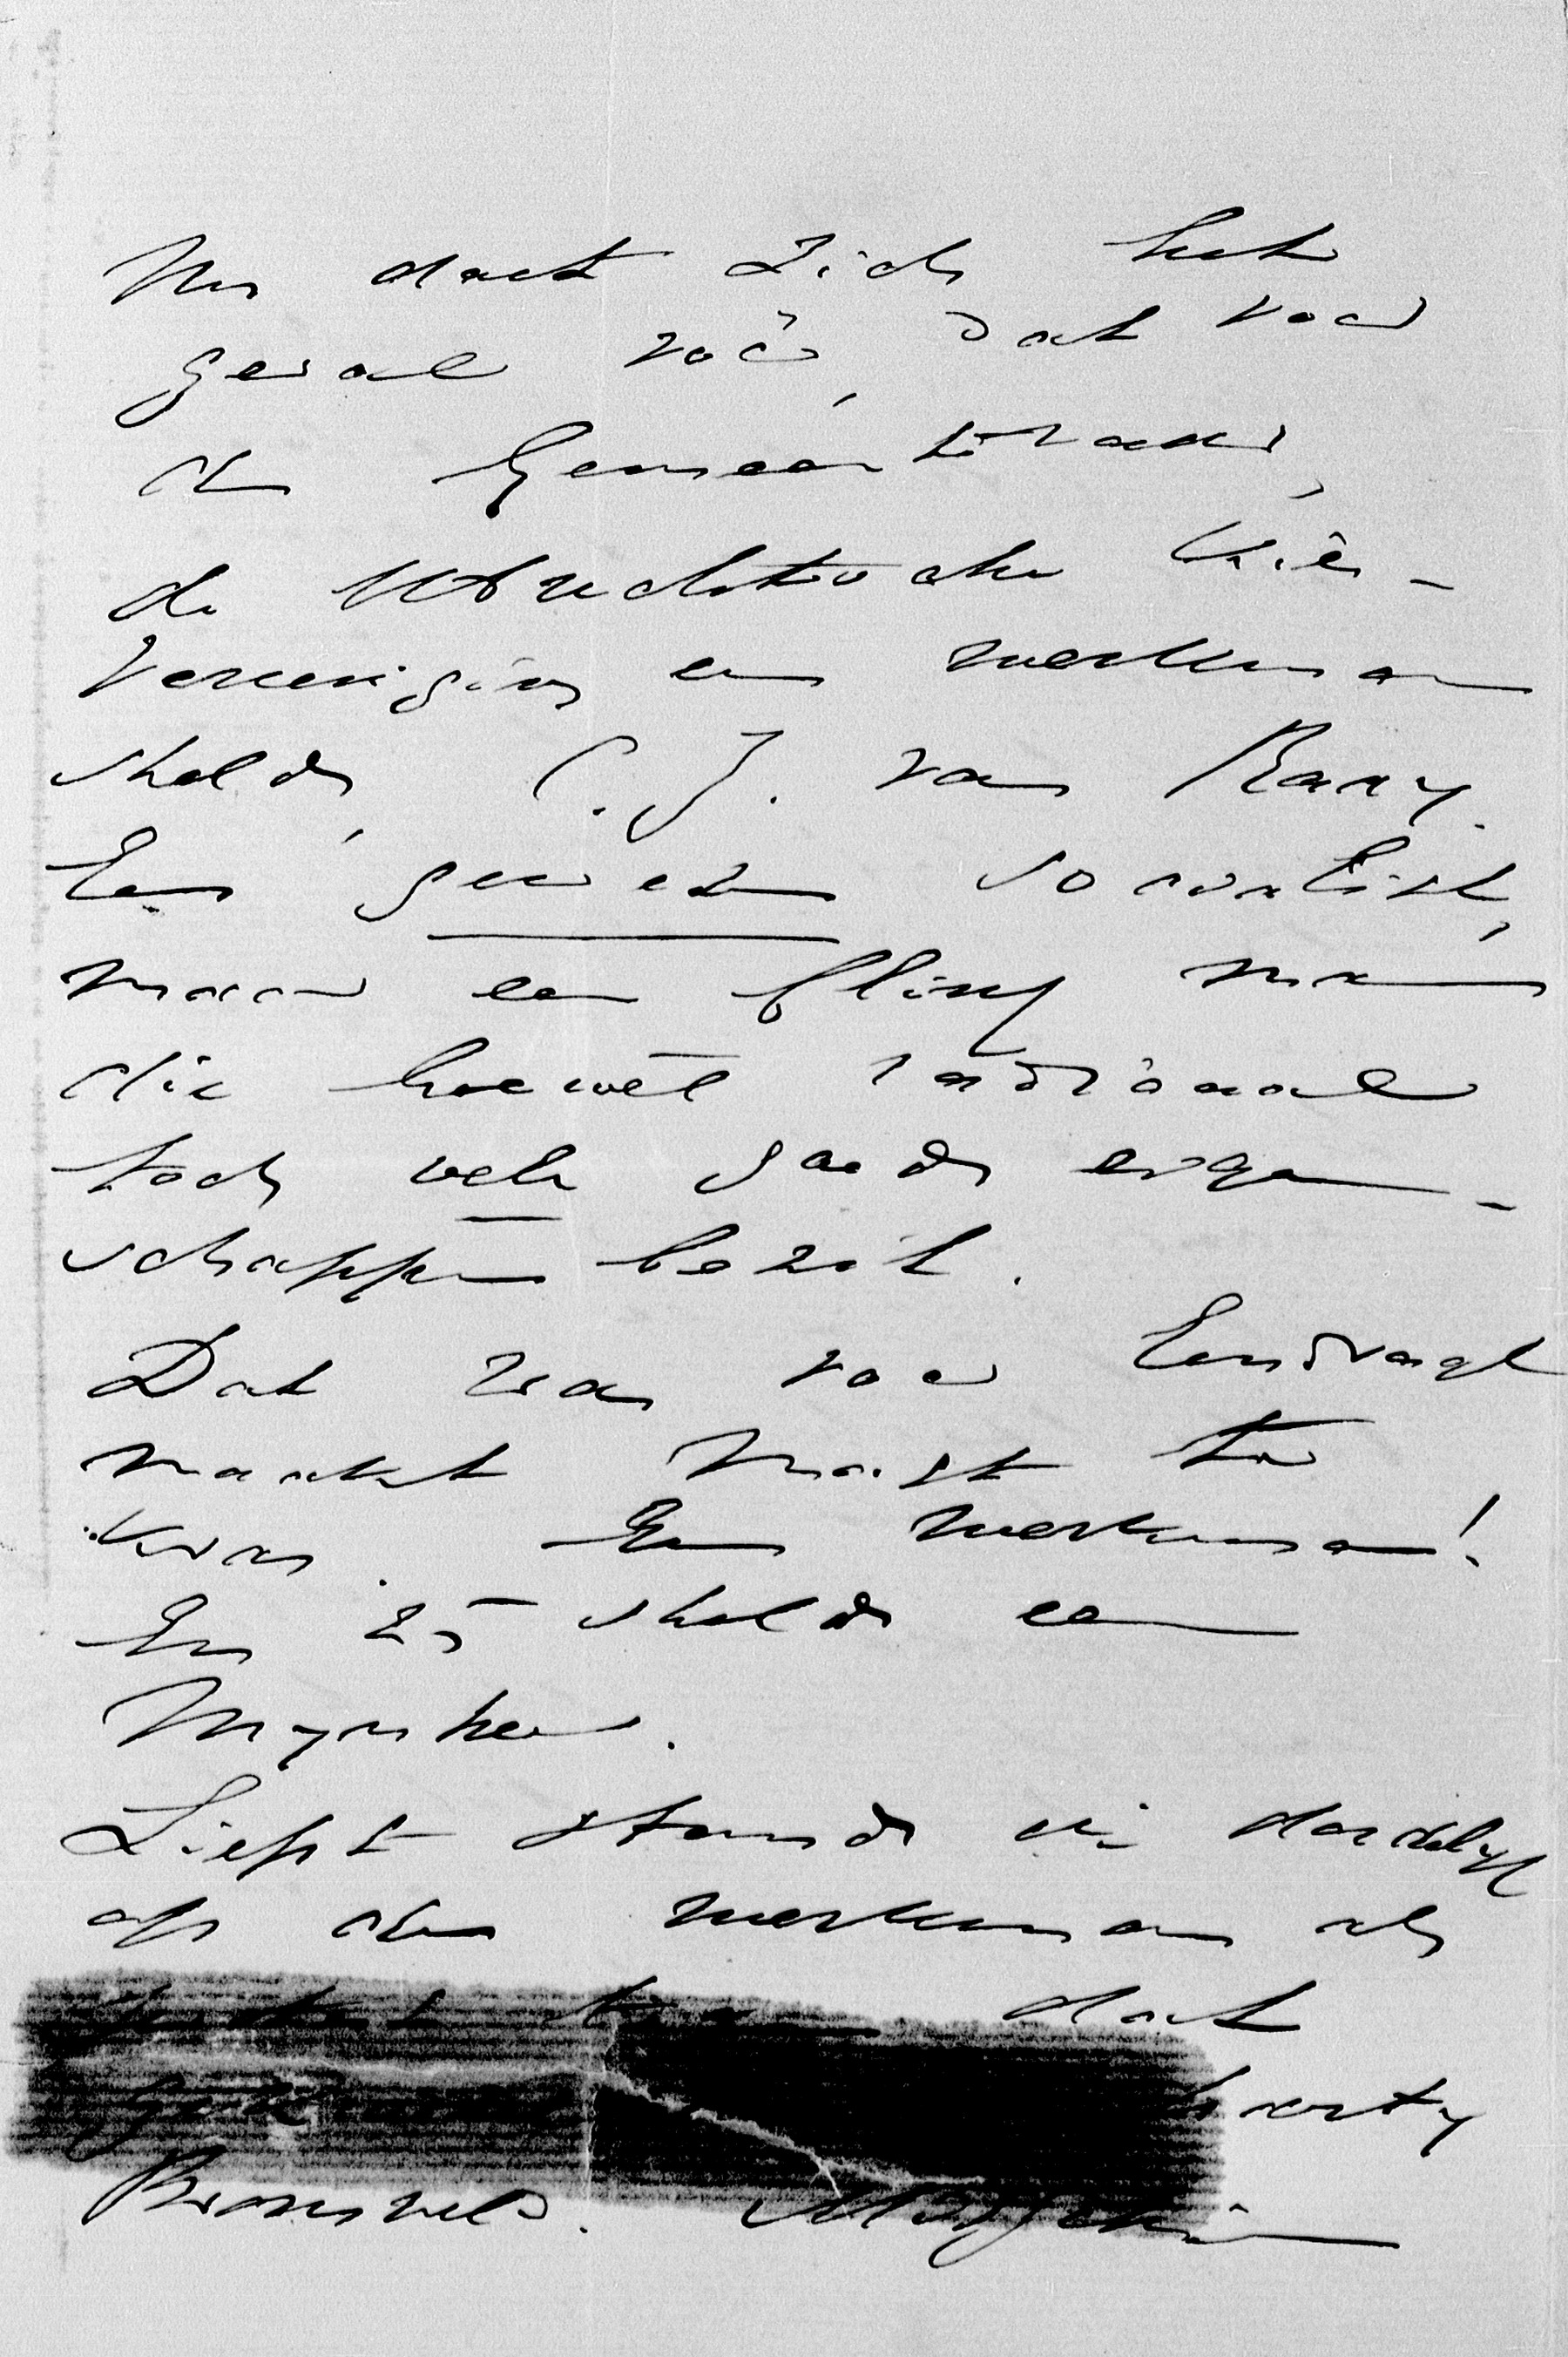 Nu doet zich het
geval voor, dat voor
den Gemeenteraad,
de Utrechtsche Kies-
vereeniging een werkman
stelde, C. J. van Raay.
Een gewezen socialist,
maar een flink man
die hoewel radicaal
toch vele goede eigen-
schappen bezit.
Dat was voor Eendragt
maakt Magt te
kras. Een werkman!
En zij stelde een
Mijnheer.
Liefst stond ik dadelijk
op den werkman als
dat
party
Bronsveld. Misschien